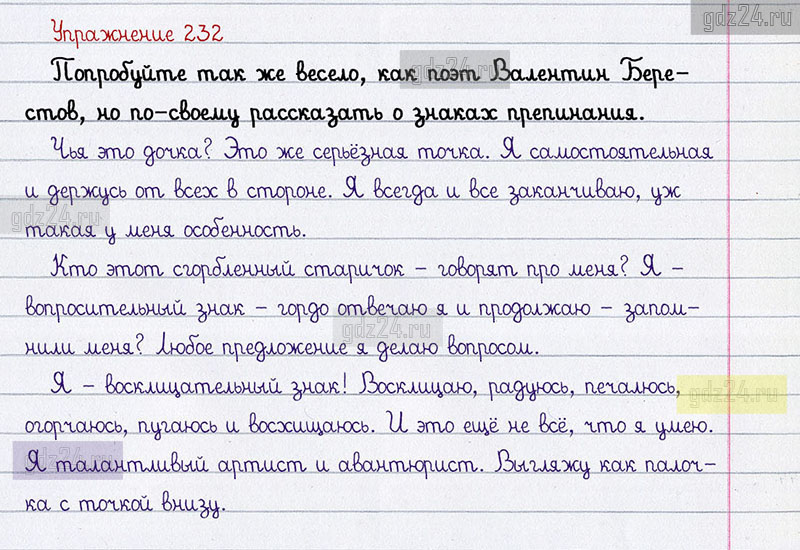 gdz24.ru
Упражнение 232
Попробуйте так же весело, как поэт Валентин Бере-
gdz24.ru
стов, но по-своему рассказать о знаках препинания.
Чья это дочка? Это же серьёзная точка. Я самостоятельная
и держусь от всех в стороне. Я всегда и все заканчиваю, уж
gdz24.ru
такая у меня особенность.
Кто этот сгорбленный старичок – говорят про меня? Я –
вопросительный знак – гордо отвечаю я и продолжаю – запом-
gdz24.ru
нили меня? Любое предложение я делаю вопросом.
Я – восклицательный знак! Восклицаю, радуюсь, печалюсь,
gdz24.ru
огорчаюсь, пугаюсь и восхищаюсь. И это ещё не всё, что я умею.
gdz24.ru
Я талантливый артист и авантюрист. Выгляжу как палоч-
ка с точкой внизу.